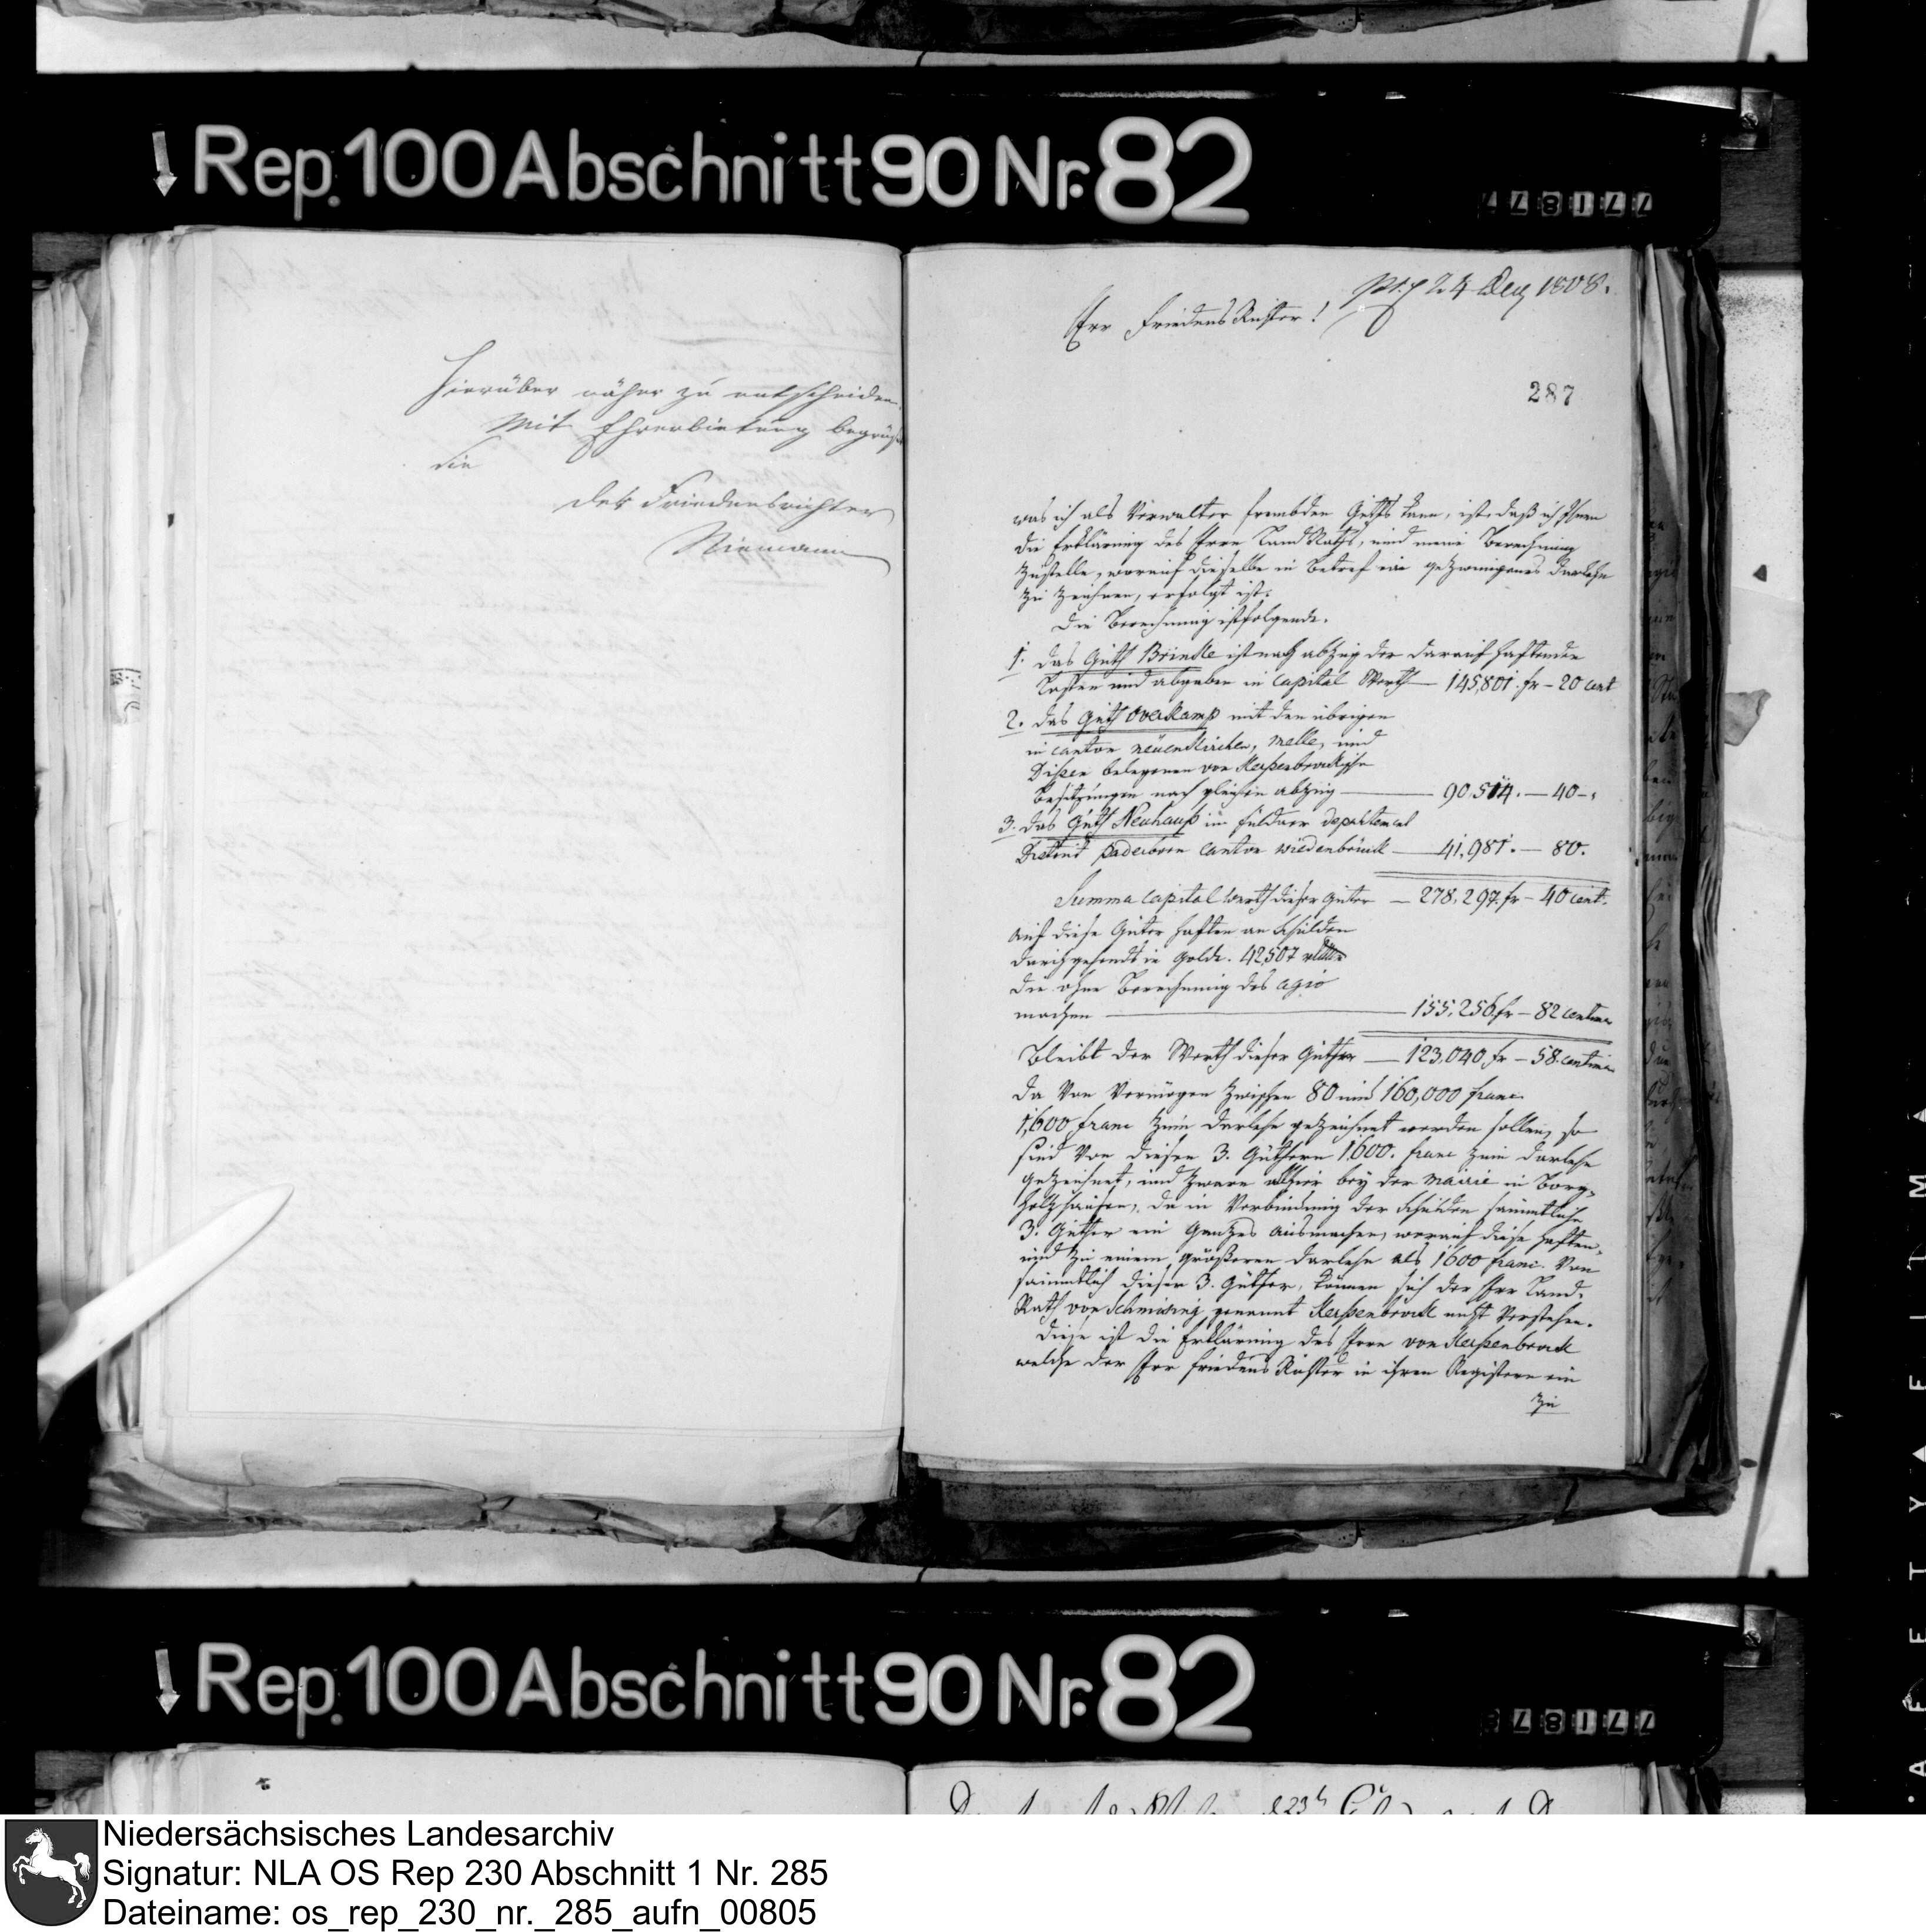 Rep. 100 Abschnitt 90 Nr. 82
771877
hierüber näher zu entscheiden.
Mit Ehrerbietung begrüßt
Sie
der Friedensrichter
Niemann
24 Dez 1808.
Herr FriedensRichter!
287
was ich als Verwalter frembden Guths kann, ist daß ich Ihnen
die Erklärung des Herrn Land Raths, und meine Berechnung
zustelle, worauf dieselbe in Betref ein gezwungenes Darlehn
zu zeichnen, erfolgt ist.
Die Berechnung ist folgende.
1. das Guth Brincke ist nach abzug der darauf haftenden
Lasten und abgaben in Capital Werth — 145,801. fr – 20 cent
2. das Guth Overkamp mit den übrigen
in canton neuenkirchen, Melle, und
Dissen belegenen von Kerßenbrockschen
Besitzungen nach gleichen abzug — 90.514. — 40 –
3. das Guth Neuhauß im fuldaer departement
District paderborn canton wiedenbrück — 41,981. — 80.
Summa capital werth dieser Güter — 278,297. fr – 40 cent.
auf diese Güter haften an Schulden
durchgehends in Golde. 42,507
die ohne Berechnung des agio
machen — 155,256. fr – 82 centimen
Bleibt der Werth dieser Güther — 123,040. fr – 58. centimen
da Von Vermögen zwischen 80 und 160,000 franc
1,600 franc zum darlehn gezeichnet werden sollen, so
sind Von diesen 3. Güthern 1600. franc zum darlehn
gezeichnet, und zwarn alhier bey der Mairie in Borg-
holzhausen, da in Verbindung der Schulden sämmtliche
3. Güther ein Ganzes ausmachen, worauf diese haften,
und zu einem größeren darlehn als 1600 franc. Von
sämmtlich dieser 3. Güther, können sich der Herr Land-
Rath von Schmising genannt Kerßenbrock nicht Verstehen.
Diese ist die Erklärung des Herrn von Kerßenbrock
welche der Herr friedens Richter in ihren Registern ein
zu
Rep. 100 Abschnitt 90 Nr. 82
Niedersächsisches Landesarchiv
Signatur: NLA OS Rep 230 Abschnitt 1 Nr. 285
Dateiname: os_rep_230_nr._285_aufn_00805